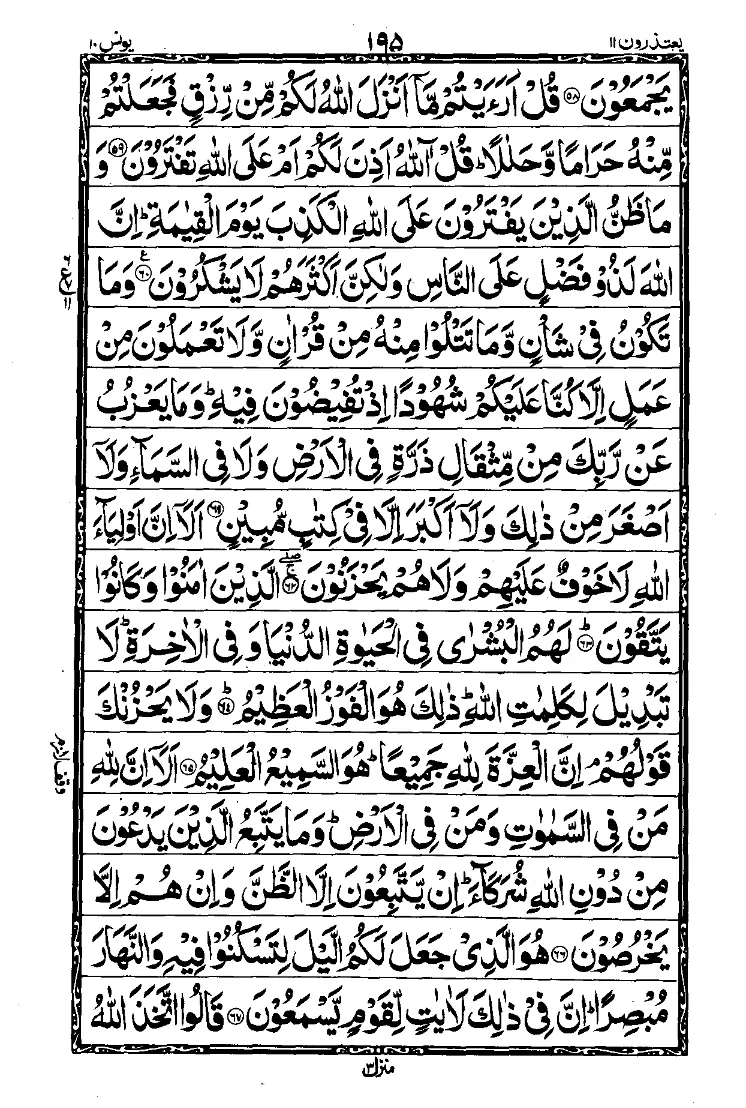 یعتذرون ۱۱
۱۹۵
یونس ۱۰
یَجْمَعُوْنَ ۝۵۸ قُلْ اَرَءَیْتُمْ مَّاۤ اَنْزَلَ اللّٰهُ لَكُمْ مِّنْ رِّزْقٍ فَجَعَلْتُمْ
مِّنْهُ حَرَامًا وَّحَلٰلًا ؕ قُلْ آٰللّٰهُ اَذِنَ لَكُمْ اَمْ عَلَی اللّٰهِ تَفْتَرُوْنَ ۝۵۹ وَ
مَا ظَنُّ الَّذِیْنَ یَفْتَرُوْنَ عَلَی اللّٰهِ الْكَذِبَ یَوْمَ الْقِیٰمَةِ ؕ اِنَّ
اللّٰهَ لَذُوْ فَضْلٍ عَلَی النَّاسِ وَلٰكِنَّ اَكْثَرَهُمْ لَا یَشْكُرُوْنَ ۝۶۰ۧ وَمَا
تَكُوْنُ فِیْ شَاْنٍ وَّمَا تَتْلُوْا مِنْهُ مِنْ قُرْاٰنٍ وَّلَا تَعْمَلُوْنَ مِنْ
عَمَلٍ اِلَّا كُنَّا عَلَیْكُمْ شُهُوْدًا اِذْ تُفِیْضُوْنَ فِیْهِ ؕ وَمَا یَعْزُبُ
عَنْ رَّبِّكَ مِنْ مِّثْقَالِ ذَرَّةٍ فِی الْاَرْضِ وَلَا فِی السَّمَآءِ وَلَاۤ
اَصْغَرَ مِنْ ذٰلِكَ وَلَاۤ اَكْبَرَ اِلَّا فِیْ كِتٰبٍ مُّبِیْنٍ ۝۶۱ اَلَاۤ اِنَّ اَوْلِیَآءَ
اللّٰهِ لَا خَوْفٌ عَلَیْهِمْ وَلَا هُمْ یَحْزَنُوْنَ ۝۶۲ۚۖ الَّذِیْنَ اٰمَنُوْا وَكَانُوْا
یَتَّقُوْنَ ۝۶۳ؕ لَهُمُ الْبُشْرٰی فِی الْحَیٰوةِ الدُّنْیَا وَفِی الْاٰخِرَةِ ؕ لَا
تَبْدِیْلَ لِكَلِمٰتِ اللّٰهِ ؕ ذٰلِكَ هُوَ الْفَوْزُ الْعَظِیْمُ ۝۶۴ؕ وَلَا یَحْزُنْكَ
قَوْلُهُمْ ۘ اِنَّ الْعِزَّةَ لِلّٰهِ جَمِیْعًا ؕ هُوَ السَّمِیْعُ الْعَلِیْمُ ۝۶۵ اَلَاۤ اِنَّ لِلّٰهِ
مَنْ فِی السَّمٰوٰتِ وَمَنْ فِی الْاَرْضِ ؕ وَمَا یَتَّبِعُ الَّذِیْنَ یَدْعُوْنَ
مِنْ دُوْنِ اللّٰهِ شُرَكَآءَ ؕ اِنْ یَّتَّبِعُوْنَ اِلَّا الظَّنَّ وَاِنْ هُمْ اِلَّا
یَخْرُصُوْنَ ۝۶۶ هُوَ الَّذِیْ جَعَلَ لَكُمُ الَّیْلَ لِتَسْكُنُوْا فِیْهِ وَالنَّهَارَ
مُبْصِرًا ؕ اِنَّ فِیْ ذٰلِكَ لَاٰیٰتٍ لِّقَوْمٍ یَّسْمَعُوْنَ ۝۶۷ قَالُوا اتَّخَذَ اللّٰهُ
وقف لازم
منزل ۳